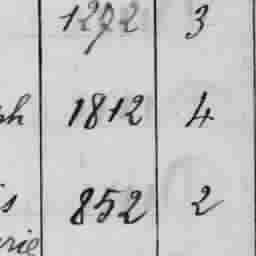 1292 3
ph 1812 4
s 852 2
rie